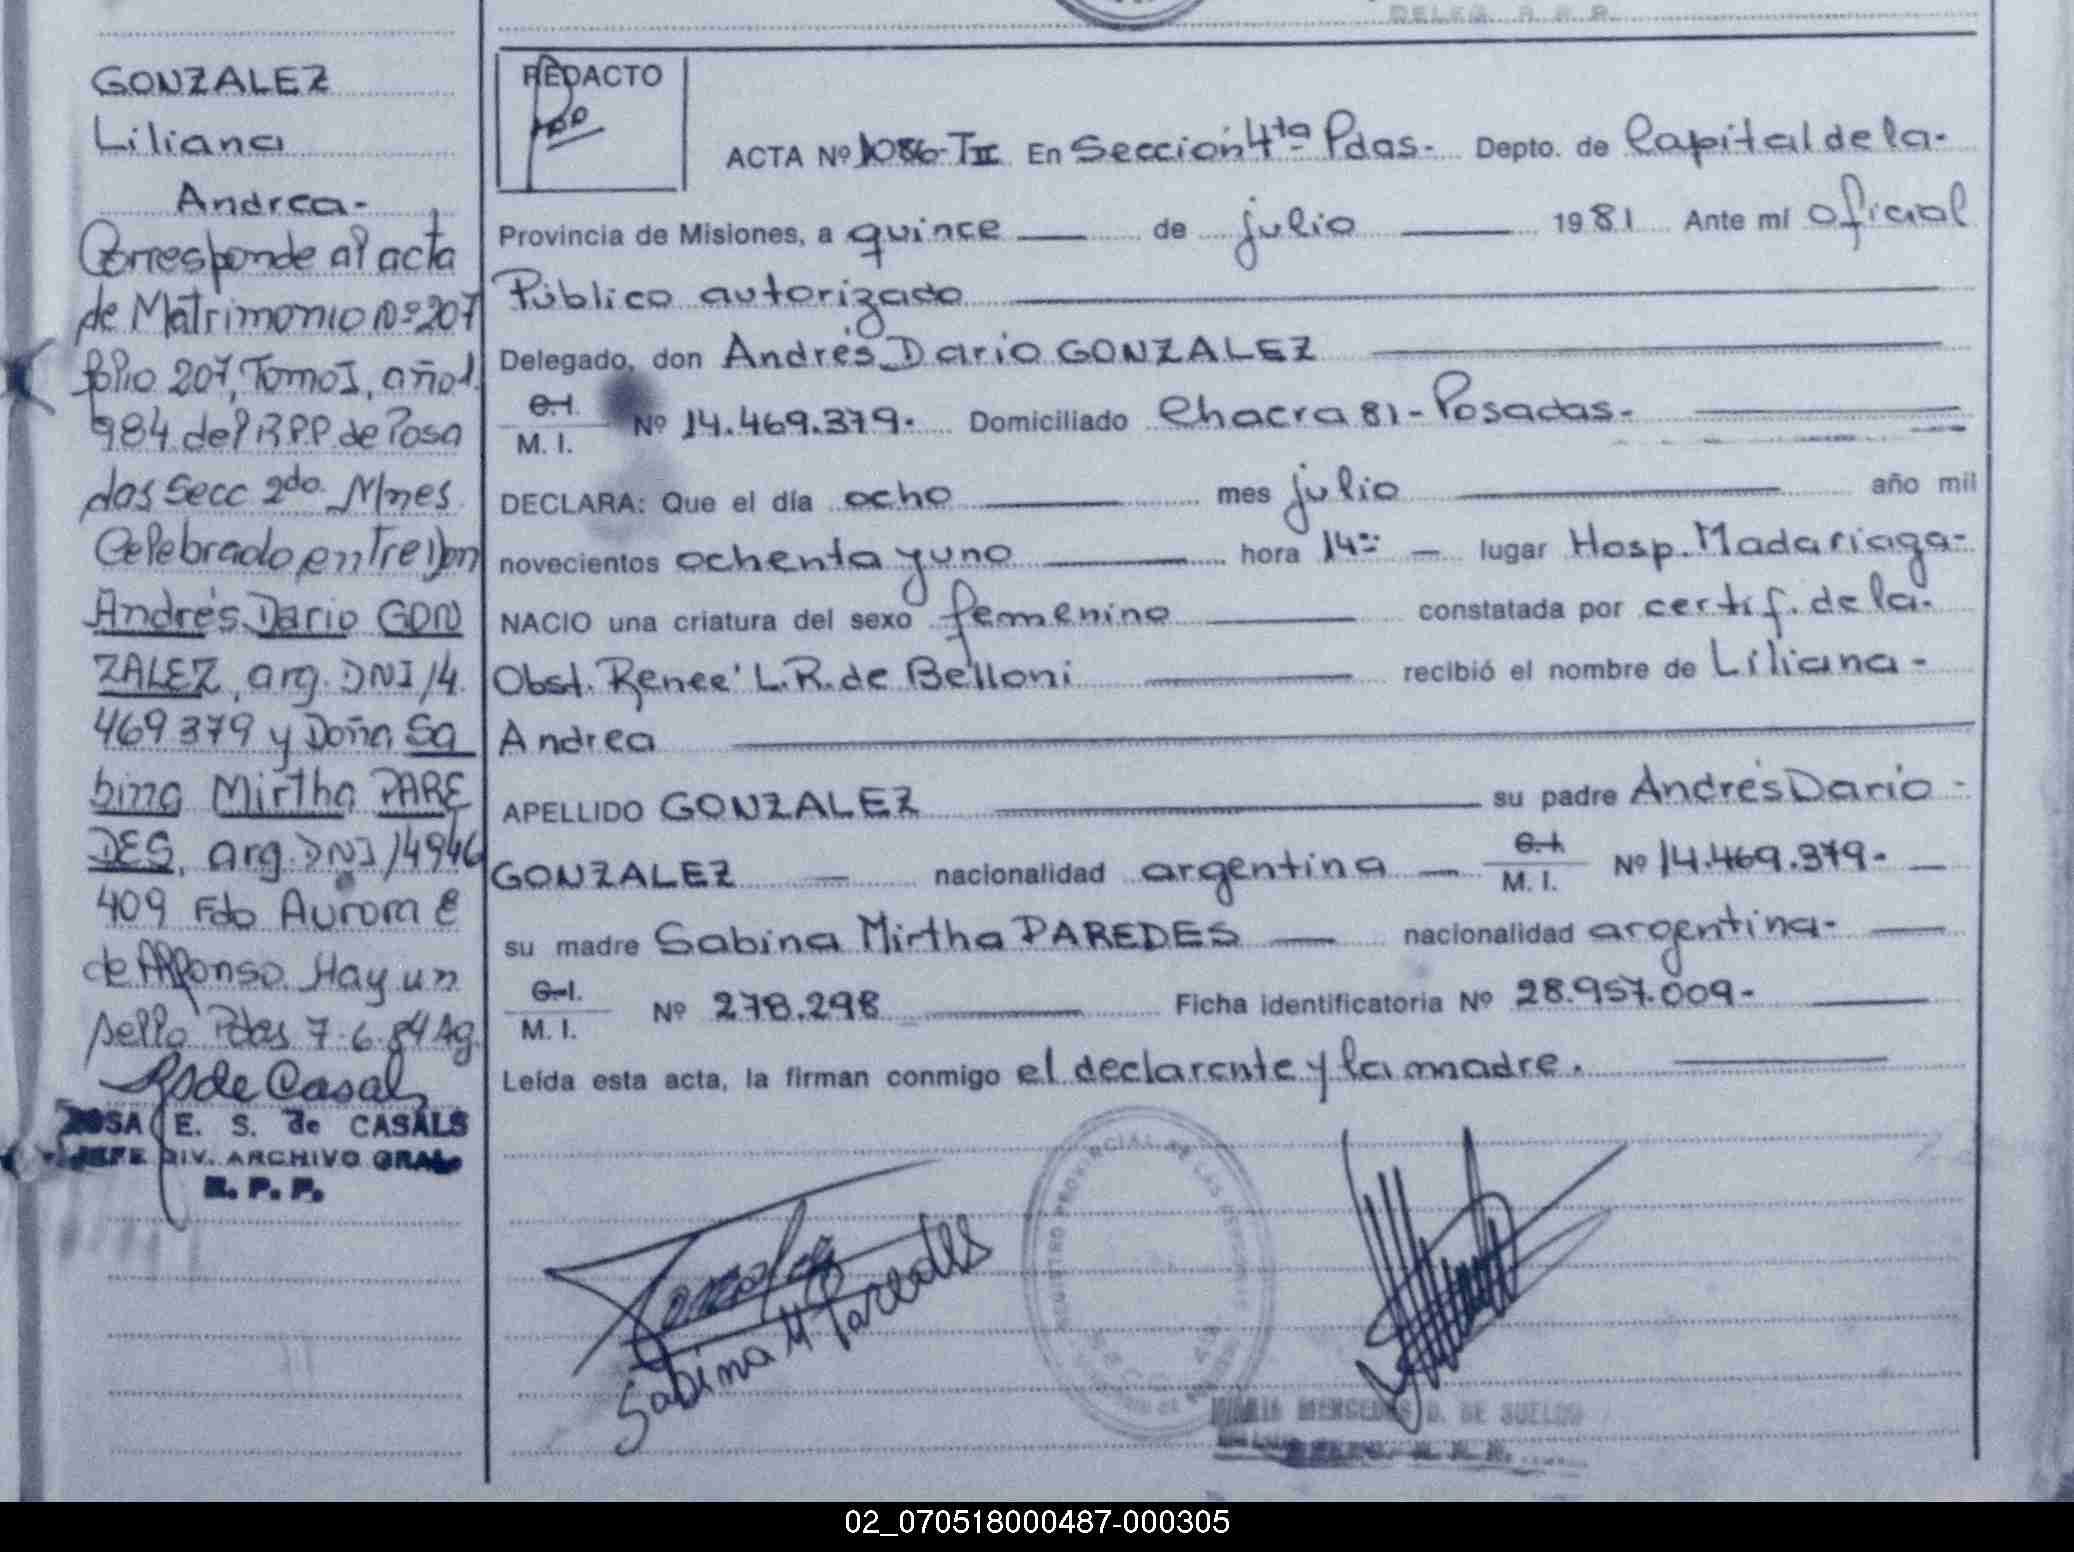 DELEG. R.P.P.
GONZALEZ
Liliana
Andrea-
Corresponde al acta
de Matrimonio Nº 207
folio 207, Tomo I, año 1.
984 del R.P.P de Posa
das Secc 2da. Mnes.
Celebrado entre Don
Andrés Dario GON
ZALEZ, arg. DNI 14.
469379 y Doña Sa
bina Mirtha PARE
DES, arg. DNI 14946
409 Fdo Aurora E
de Alfonso. Hay un
sello Pdas 7.6.84 Ag.
RSde Casals
ROSA E. S. de CASALS
JEFE DIV. ARCHIVO GRAL.
R. P. P.
REDACTO
ACTA Nº 1086-TII En Sección 4ta Pdas.- Depto. de Capital de la-
Provincia de Misiones, a quince de julio 1981 Ante mí oficial
Público autorizado
Delegado, don Andrés Dario GONZALEZ
C. I.
M. I. Nº 14.469.379- Domiciliado Chacra 81-Posadas-
DECLARA: Que el día ocho mes julio año mil
novecientos ochenta y uno hora 14= lugar Hosp. Madariaga-
NACIO una criatura del sexo femenino constatada por certif. de la-
Obst. Renee' L.R. de Belloni recibió el nombre de Liliana-
Andrea
APELLIDO GONZALEZ su padre Andrés Dario-
GONZALEZ nacionalidad argentina C. I.
M. I. Nº 14.469.379-
su madre Sabina Mirtha PAREDES nacionalidad argentina-
C. I.
M. I. Nº 278.298 Ficha identificatoria Nº 28.957.009-
Leída esta acta, la firman conmigo el declarante y la madre.
REGISTRO PROVINCIAL DE LAS PERSONAS
SECC. 4ta
Gonzalez
Sabina M Paredes
MARIA MERCEDES D. DE SUELDO
DELEG. R.P.P.
02_070518000487-000305